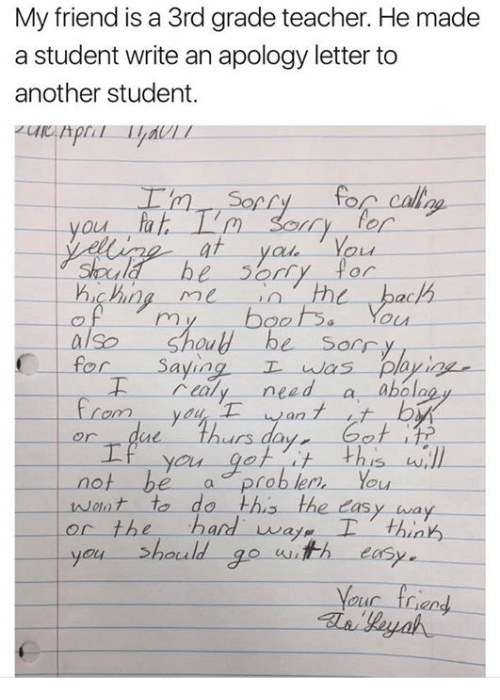 My friend is a 3rd grade teacher. He made
a student write an apology letter to
another student.
April 11, 2017
I'm sorry for calling
you fat. I'm sorry for
yelling at you. You
should be sorry for
kicking me in the back
of my boots. You
also should be sorry
for saying I was playing.
I realy need a abology
from you, I want it by
or due thursday. Got it?
If you got it this will
not be a problem. You
want to do this the easy way
or the hard way. I think
you should go with easy.
Your friend,